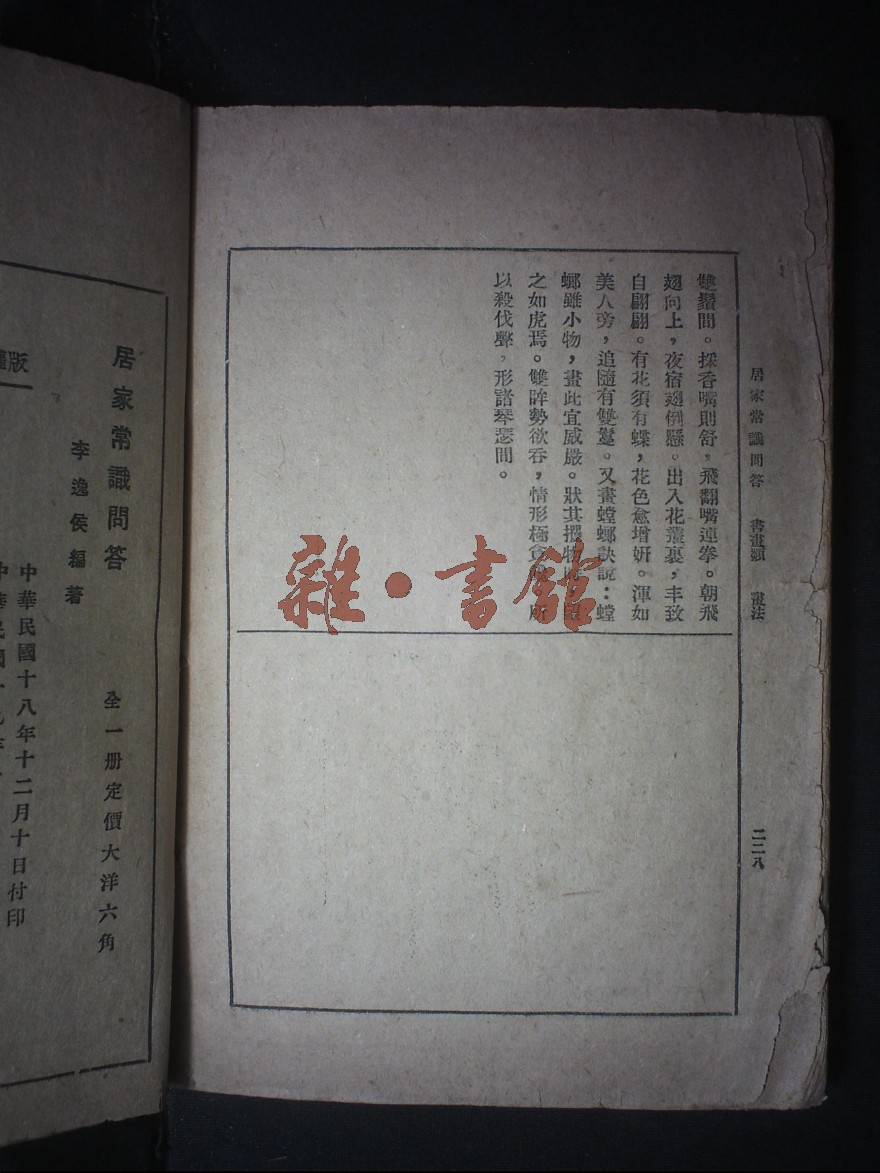 居家常識問答　書畫類　畫法
二二八
雙鬚間。採香嘴則舒，飛翻嘴連拳。朝飛
翅向上，夜宿翅倒懸。出入花叢裏，丰致
自翩翩。有花須有蝶，花色愈增妍。渾如
美人旁，追隨有雙鬟。又畫螳螂訣說：螳
螂雖小物，畫此宜威嚴。狀其攫物時，望
之如虎焉。雙眸勢欲吞，情形極貪　所
以殺伐聲，形諸琴瑟間。
雜·書館
版
居家常識問答
李逸侯編著
全一册定價大洋六角
中華民國十八年十二月十日付印
中華民國十九年